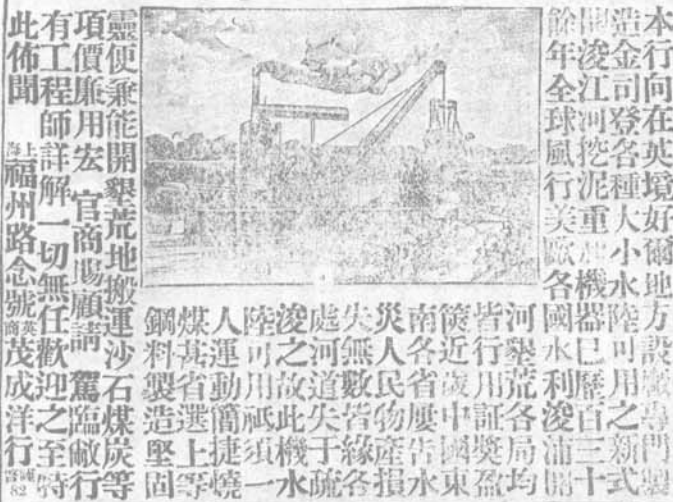 本行向在英境好爾地方設廠專門製
造金司登各種大小水陸可用之新式
開浚江河挖泥重機器已歷百三十
餘年全球風行美歐各國水利浚浦開
河墾荒各局均
皆行用証獎盈
篋近歲中國東
南各省屢告水
災人民物產損
失無數皆緣各
處河道失于疏
浚之故此機水
陸可用祇須一
人運動簡捷燒
煤甚省選上等
鋼料製造堅固
靈便兼能開墾荒地搬運沙石煤炭等
項價廉用宏 官商賜顧請 駕臨敝行
有工程師詳解一切無任歡迎之至特
此佈聞 上海福州路念號英商茂成洋行 82